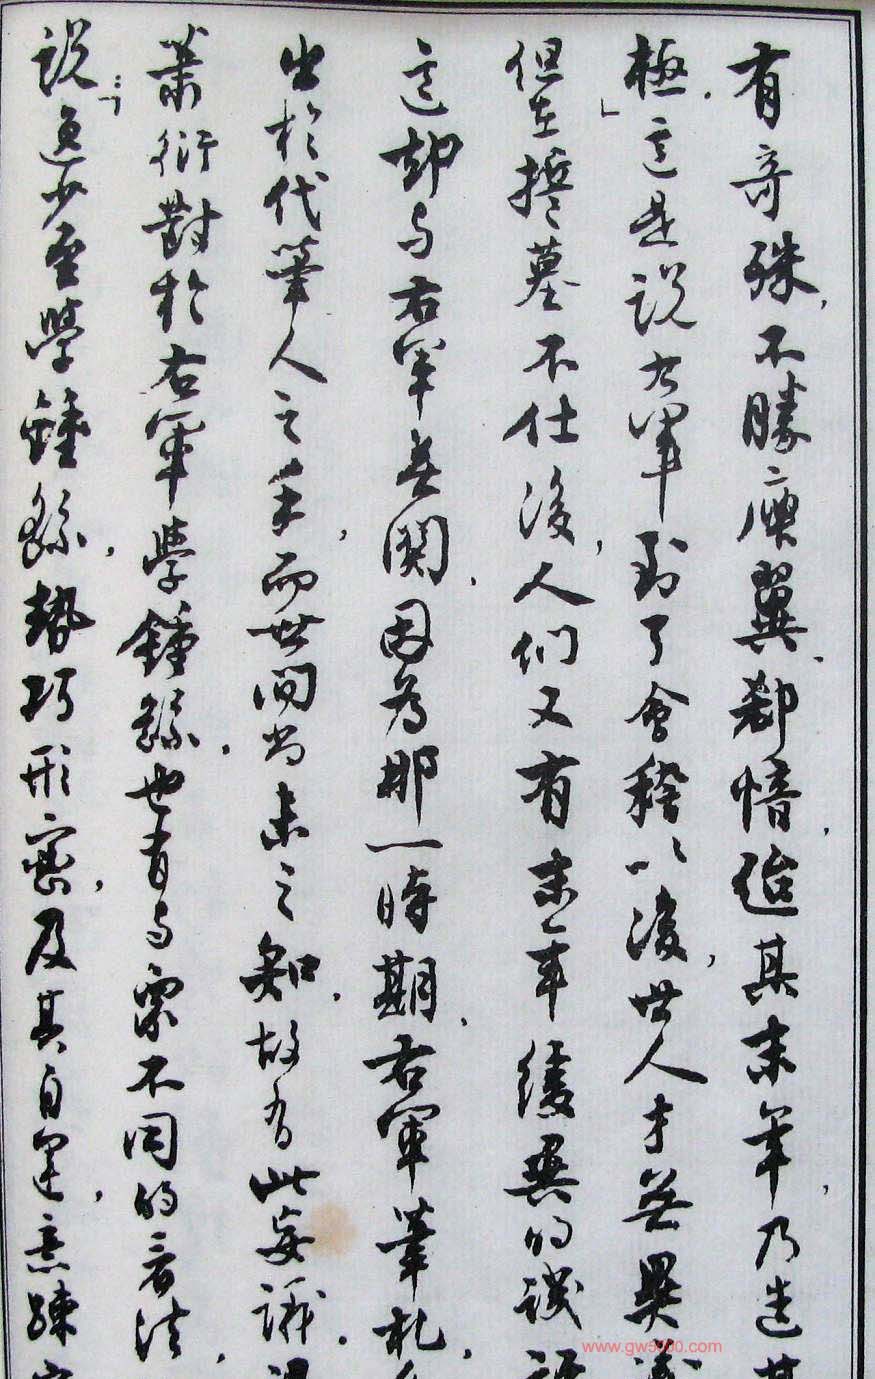 有奇殊,不勝庾翼、郗愔,迨其末年,乃造其
極.」這是説右軍到了會稽以後,世人才無異議
但在誓墓不仕後,人們又有末年緩異的議
這却与右軍無關、因為那一時期、右軍筆札,
出於代筆人之手,而世間尚未之知、故有此妄議.
蕭衍對於右軍學鍾繇.也有与衆不同的看法,
説:「逸少至學鍾繇,勢巧形密,及其自運,意疎
www.gw5000.com